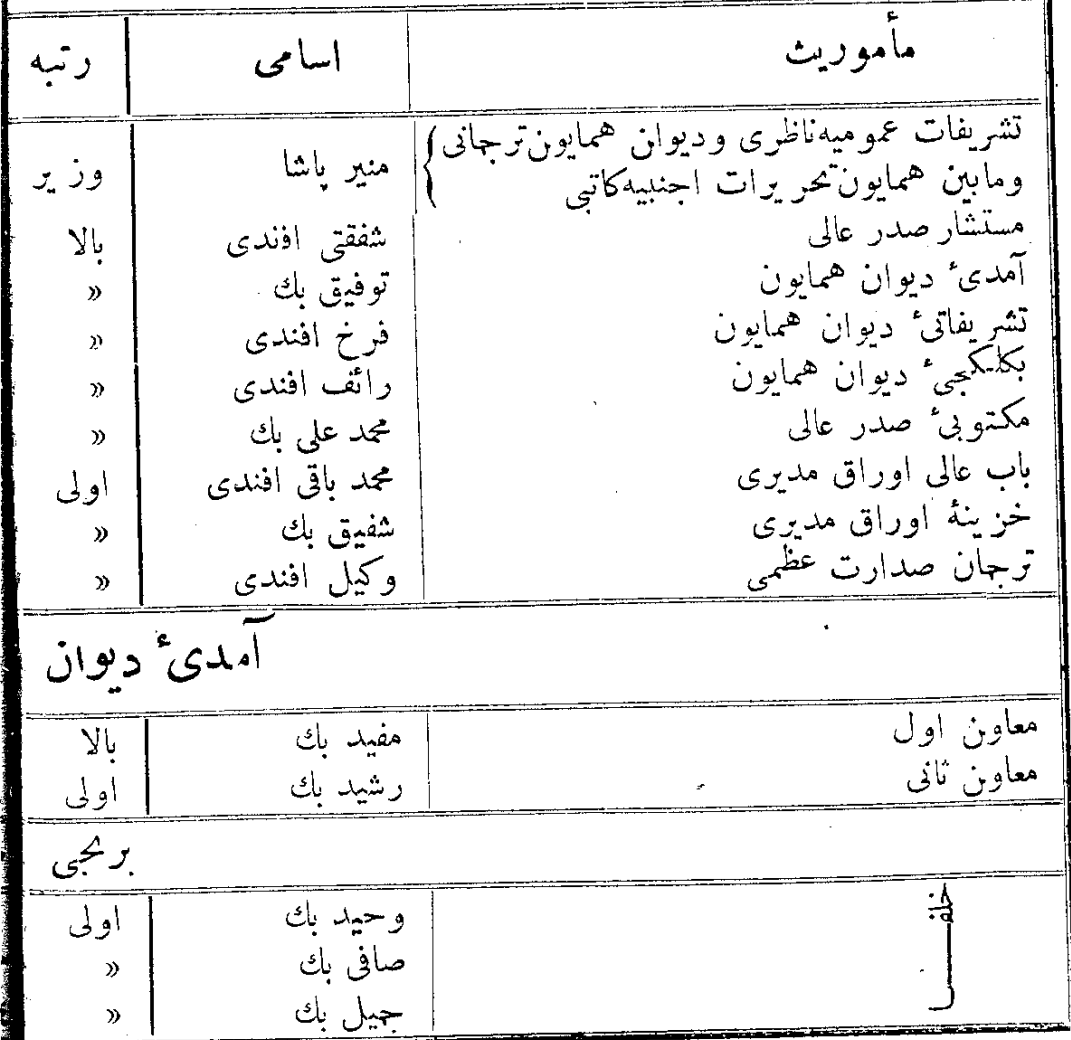 مأموریت اسامی رتبه
تشریفات عمومیه ناظری ودیوان همایون ترجمانی
ومابین همایون تحریرات اجنبیه کاتبی منیر پاشا وزیر
مستشار صدر عالی شفقتی افندی بالا
آمدیٔ دیوان همایون توفیق بك »
تشریفاتیٔ دیوان همایون فرخ افندی »
بكلكجیٔ دیوان همایون رائف افندی »
مکتوبیٔ صدر عالی محمد علی بك »
باب عالی اوراق مدیری محمد باقی افندی اولی
خزینهٔ اوراق مدیری شفیق بك »
ترجمان صدارت عظمی وکیل افندی »
آمدیٔ دیوان
معاون اول مفید بك بالا
معاون ثانی رشید بك اولی
برنجی
خلفا وحید بك اولی
صافی بك »
جمیل بك »